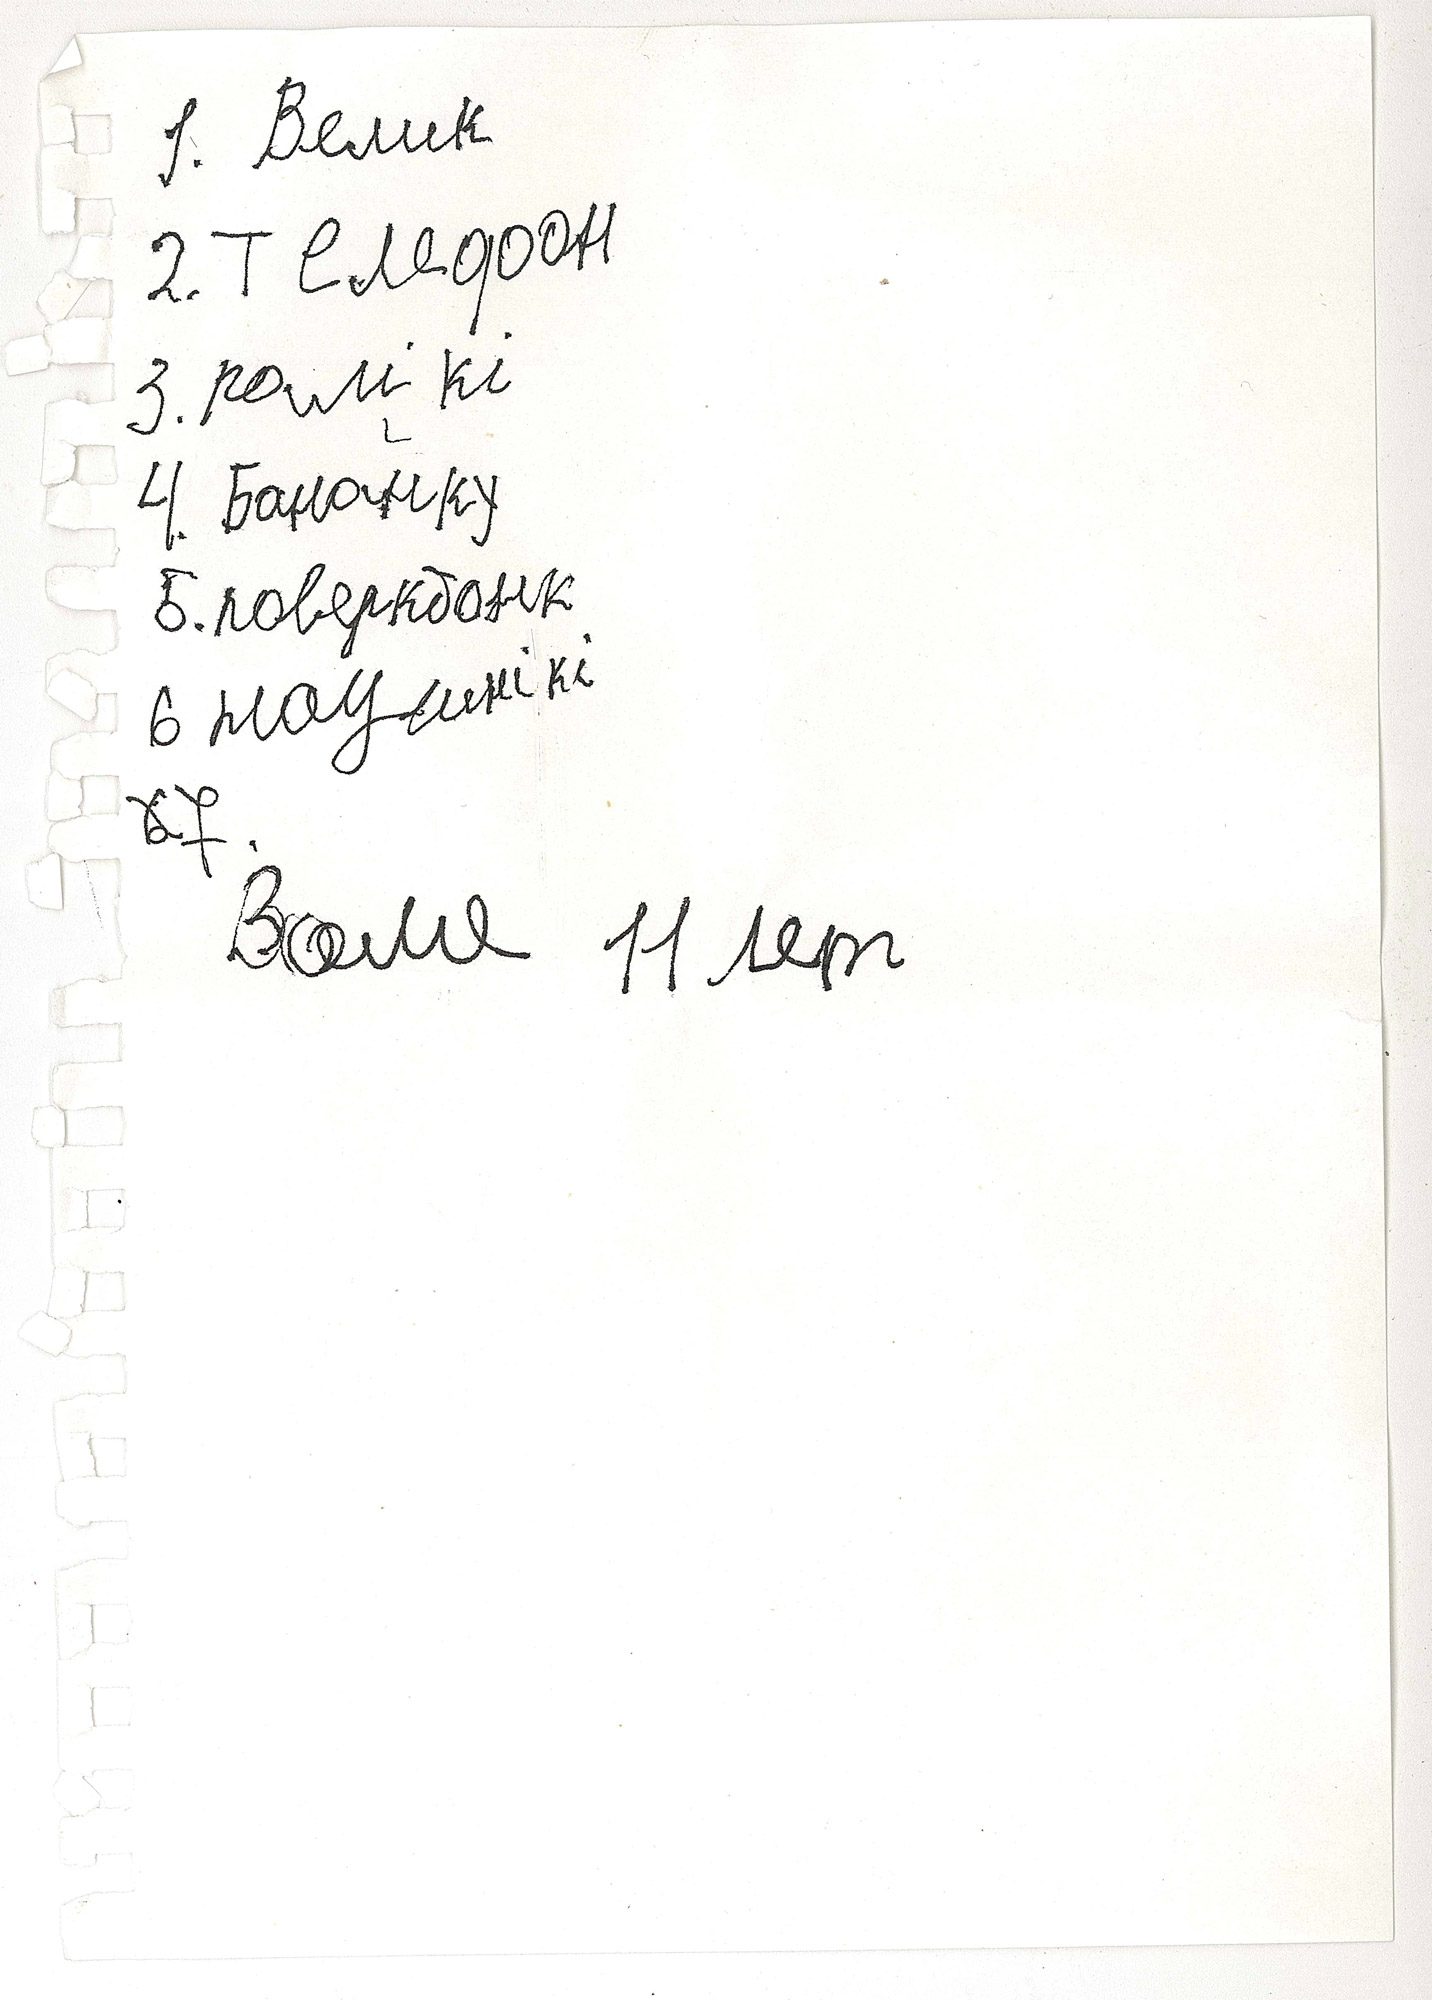 1. Велик
2. Телефон
3. ролікі
4. Бананку
5. поверкбанк
6 наушнікі
7.
Воме 11 лет